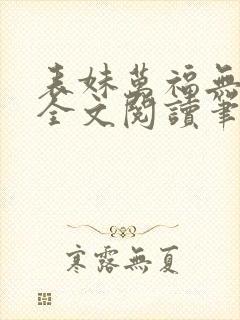 表妹萬福無
全文閱讀筆
寒露無夏